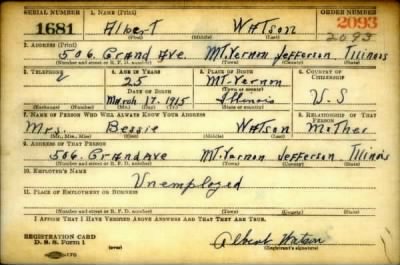 SERIAL NUMBER 1. NAME (Print) ORDER NUMBER
1681 Albert Watson 2093
2093
(First) (Middle) (Last)
2. ADDRESS (Print)
506. Grand Ave. Mt. Vernon Jefferson Illinois
(Number and street or R. F. D. number) (Town) (County) (State)
3. TELEPHONE 4. AGE IN YEARS 5. PLACE OF BIRTH 6. COUNTRY OF CITIZENSHIP
25 Mt-Vernon
DATE OF BIRTH (Town or county)
March 17. 1915 Illinois U.S
(Exchange) (Number) (Mo.) (Day) (Yr.) (State or country)
7. NAME OF PERSON WHO WILL ALWAYS KNOW YOUR ADDRESS 8. RELATIONSHIP OF THAT PERSON
Mrs. Bessie Watson Mother
(Mr., Mrs., Miss) (First) (Middle) (Last)
9. ADDRESS OF THAT PERSON
506. Grand Ave Mt. Vernon Jefferson Illinois
(Number and street or R. F. D. number) (Town) (County) (State)
10. EMPLOYER'S NAME
Unemployed
11. PLACE OF EMPLOYMENT OR BUSINESS
(Number and street or R. F. D. number) (Town) (County) (State)
I AFFIRM THAT I HAVE VERIFIED ABOVE ANSWERS AND THAT THEY ARE TRUE.
REGISTRATION CARD
D. S. S. Form 1 (over) Albert Watson
(Registrant's signature)